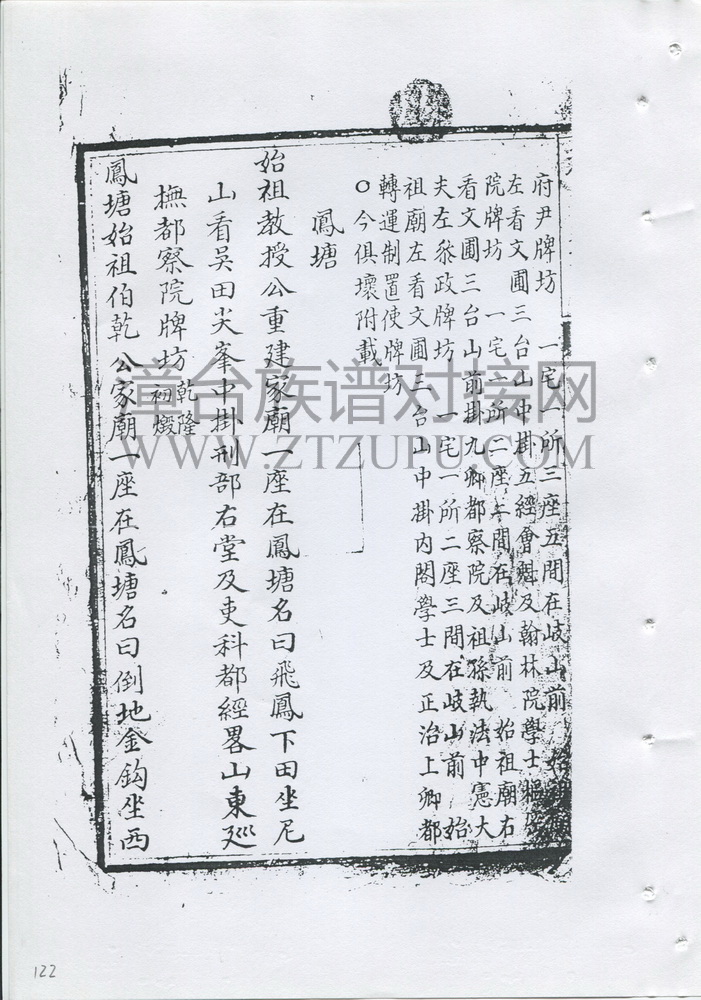 府尹牌坊　一宅一所三座五間在岐山前　始祖廟
左看文圃三台山中掛五經會魁及翰林院學士樞密
院牌坊　一宅一所二座二間在岐山前　始祖廟右
看文圃三台山前掛九卿都察院及祖孫執法中憲大
夫左叅政牌坊　一宅一所二座三間在岐山前　始
祖廟左看文圃三台山中掛内閣學士及正治上卿都
轉運制置使牌坊
○今俱壞附載
鳳塘
始祖教授公重建家廟一座在鳳塘名曰飛鳳下田坐尼
山看吴田尖峯中掛刑部右堂及吏科都經畧山東巡
撫都察院牌坊乾隆初燬
鳳塘始祖伯乾公家廟一座在鳳塘名曰倒地金鈎坐西
漳台族谱对接网
WWW.ZTZUPU.COM
122